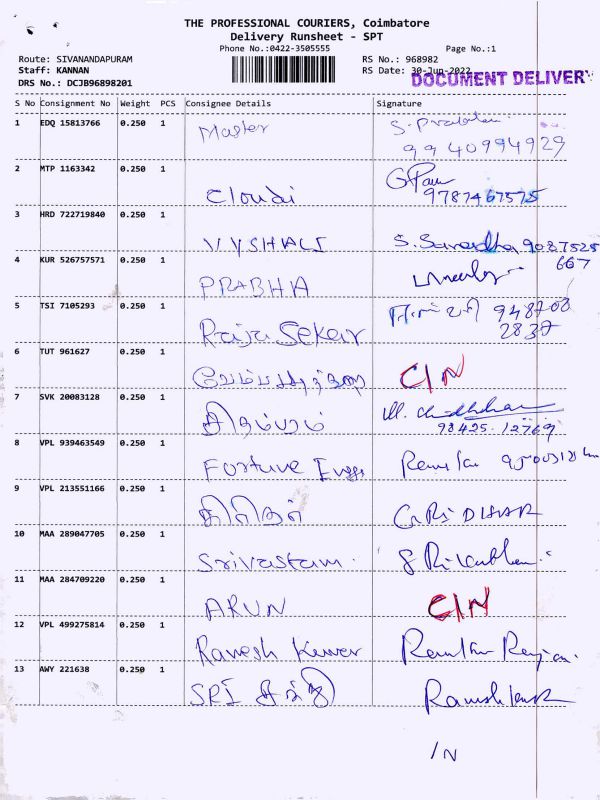 THE PROFESSIONAL COURIERS, Coimbatore
Delivery Runsheet - SPT
Phone No.:0422-3505555
Page No.:1
Route: SIVANANDAPURAM
RS No.: 968982
Staff: KANNAN
RS Date: 30-Jun-2022
DOCUMENT DELIVERY
DRS No.: DCJB96898201
S No Consignment No Weight PCS Consignee Details Signature
1 EDQ 15813766 0.250 1 Master
9940994929
2 MTP 1163342 0.250 1 Cloudi
9787467575
3 HRD 722719840 0.250 1 VYSHALI 9087528
667
4 KUR 526757571 0.250 1 PRABHA
5 TSI 7105293 0.250 1 Raja Sekar 948708
2837
6 TUT 961627 0.250 1 C/N
7 SVK 20083128 0.250 1
98425-12769
8 VPL 939463549 0.250 1 Fortune
9 VPL 213551166 0.250 1 GRIDHAR
10 MAA 289047705 0.250 1 Srivastam
11 MAA 284709220 0.250 1 ARUN C/N
12 VPL 499275814 0.250 1 Ramesh Kumar
13 AWY 221638 0.250 1 SRI சக்தி
/N